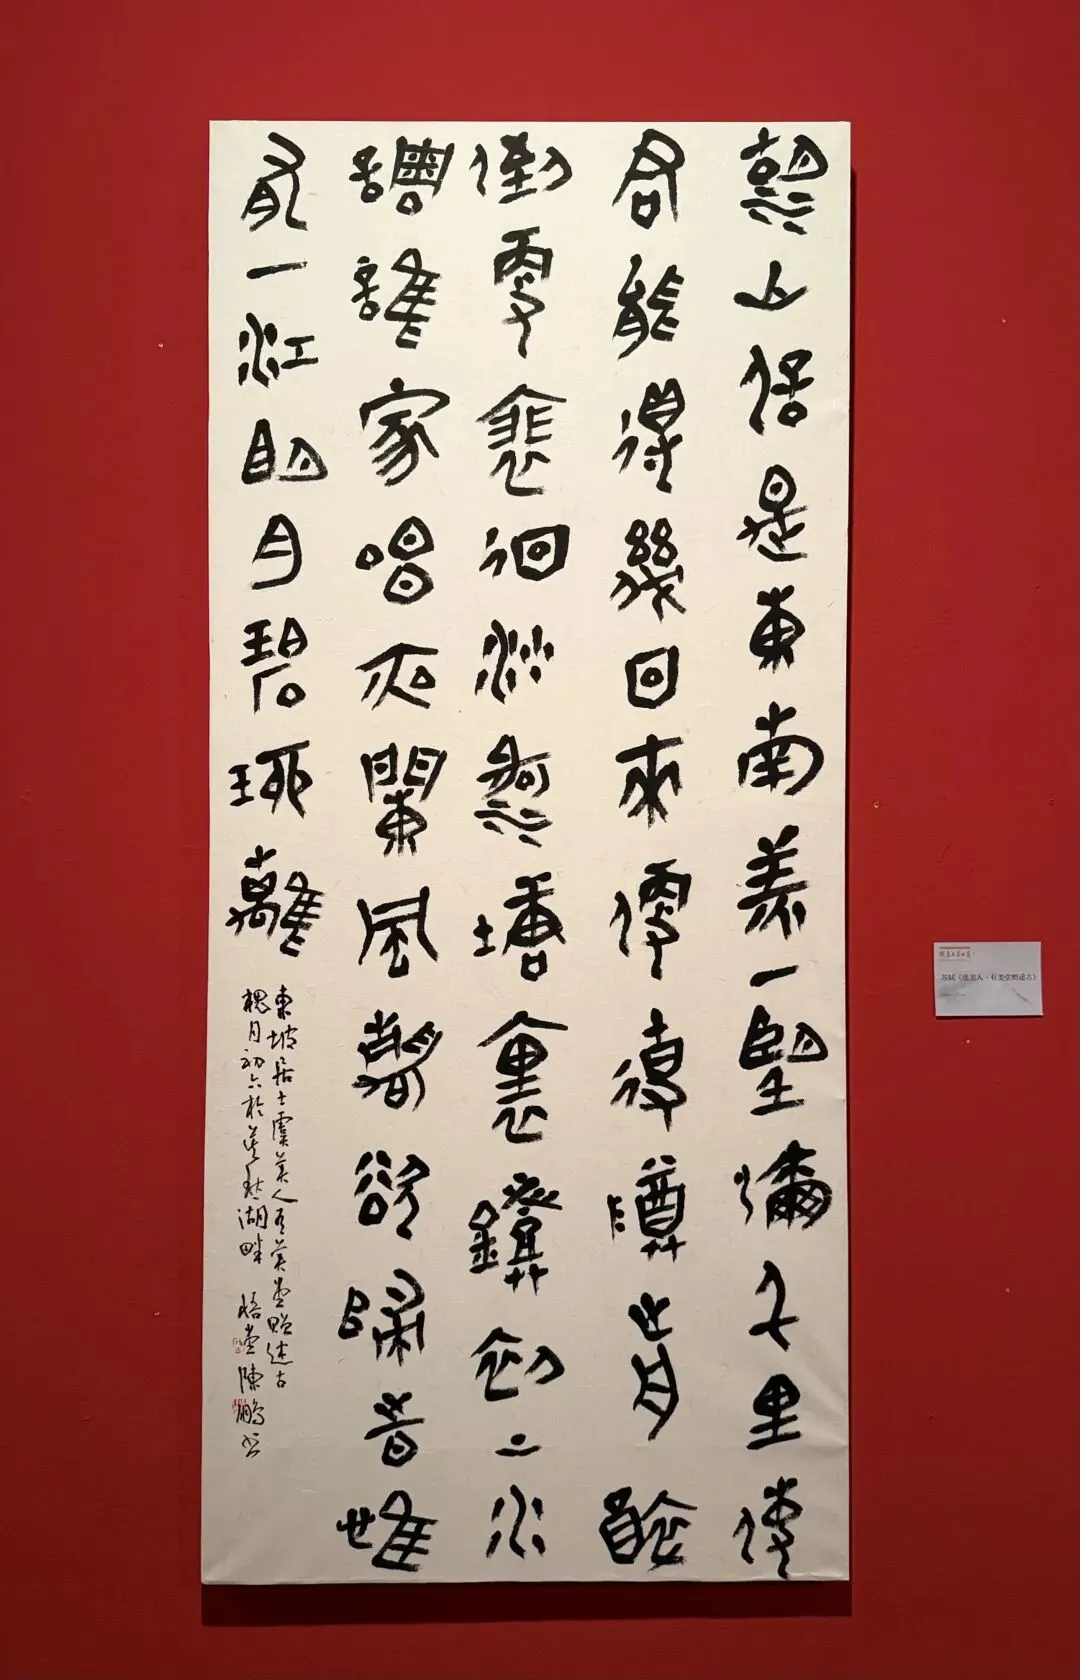 湖山信是東南美一望彌千里使
君能得幾回來便使尊前醉
倒更裵徊沙河塘裏鐙初上水
調誰家唱夜闌風靜欲歸時惟
有一江明月碧琉璃
東坡居士虞美人有美堂贈述古
槐月初六於莫愁湖畔 悟堂陳鵬書
苏轼《虞美人·有美堂赠述古》